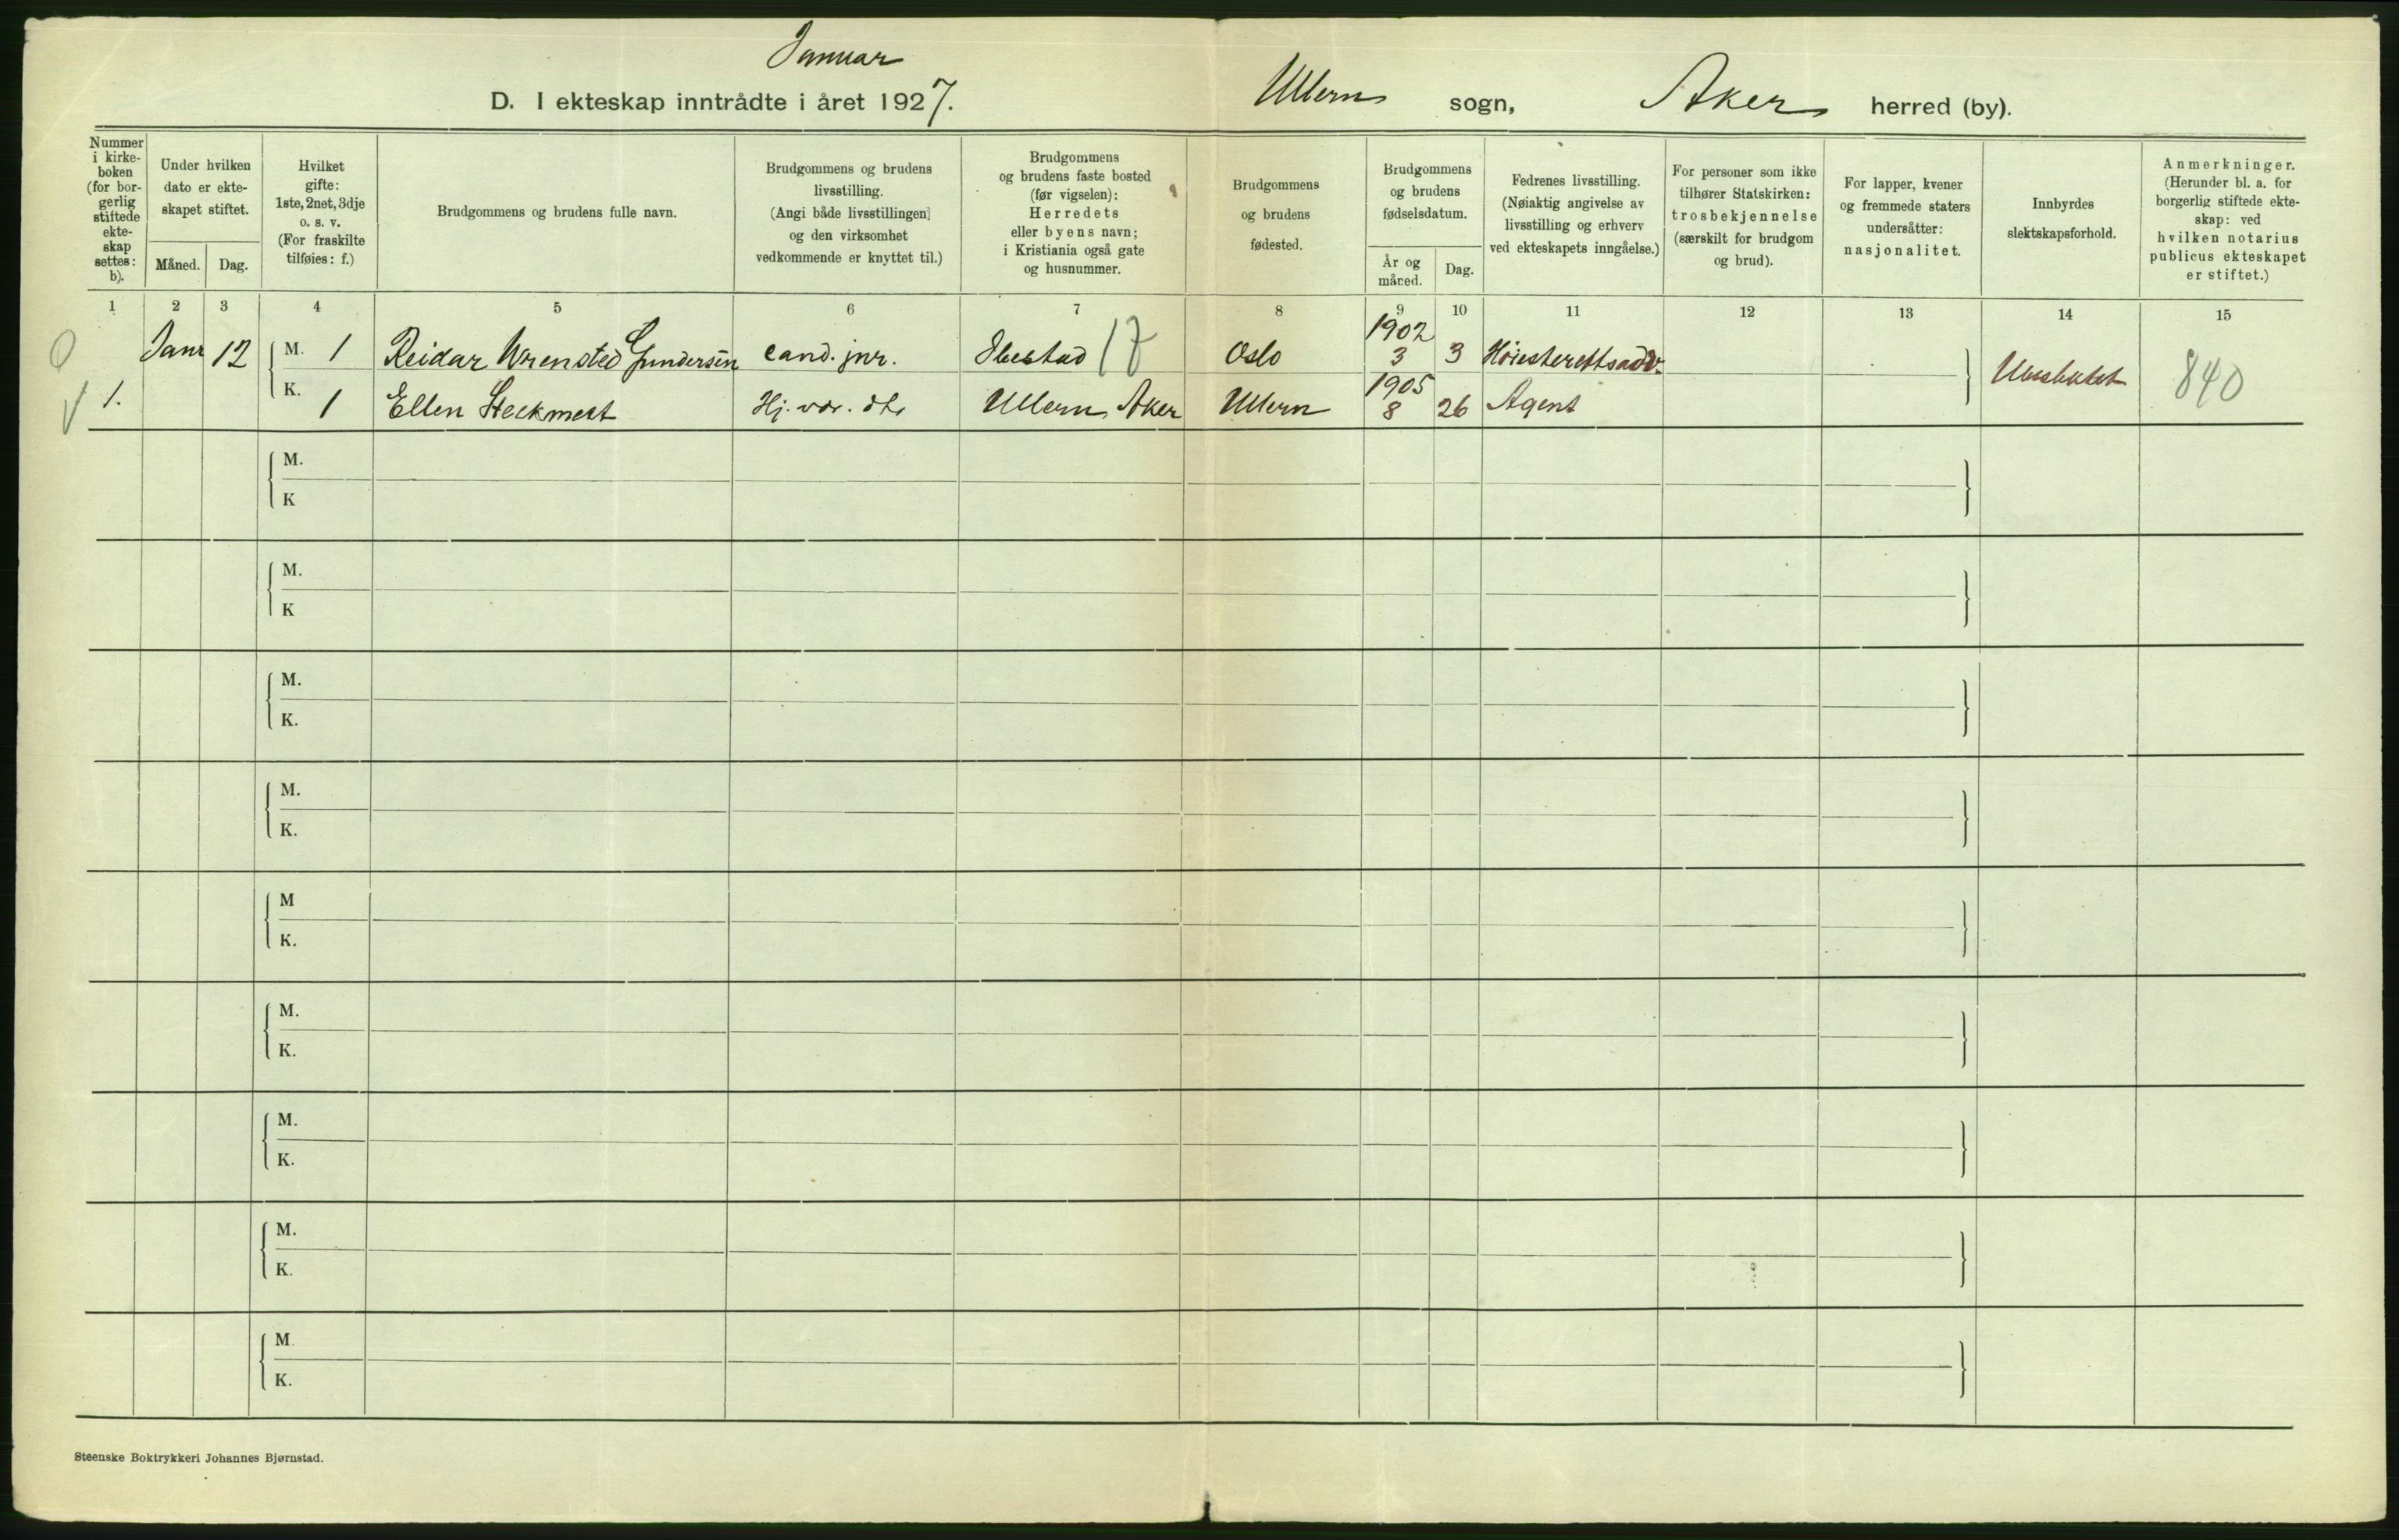 Januar
D. I ekteskap inntrådte i året 1927.
Ullern sogn, Aker herred (by).
Nummer
i kirke-
boken
(for bor-
gerlig
stiftede
ekte-
skap
settes:
b).
Under hvilken
dato er ekte-
skapet stiftet.
Måned. Dag.
Hvilket
gifte:
1ste, 2net, 3dje
o. s. v.
(For fraskilte
tilføies: f.)
Brudgommens og brudens fulle navn.
Brudgommens og brudens
livsstilling.
(Angi både livsstillingen
og den virksomhet
vedkommende er knyttet til.)
Brudgommens
og brudens faste bosted
(før vigselen):
Herredets
eller byens navn;
i Kristiania også gate
og husnummer.
Brudgommens
og brudens
fødested.
Brudgommens
og brudens
fødselsdatum.
År og
måned.
Dag.
Fedrenes livsstilling.
(Nøiaktig angivelse av
livsstilling og erhverv
ved ekteskapets inngåelse.)
For personer som ikke
tilhører Statskirken:
trosbekjennelse
(særskilt for brudgom
og brud).
For lapper, kvener
og fremmede staters
undersåtter:
nasjonalitet.
Innbyrdes
slektskapsforhold.
Anmerkninger.
(Herunder bl. a. for
borgerlig stiftede ekte-
skap: ved
hvilken notarius
publicus ekteskapet
er stiftet.)
1 2 3 4 5 6 7 8 9 10 11 12 13 14 15
0 Janr 12 M. 1 Reidar Wrensted Gundersen cand. jur. Ibestad 17 Oslo 1902 3 3 Høiesterettsadv.
1. K. 1 Ellen Steckmest Hj. vær. dtr Ullern, Aker Ullern 1905 8 26 Agent Ubeslektet 840
M.
K
M.
K
M.
K.
M.
K.
M
K.
M.
K.
M.
K.
M.
K.
M
K.
Steenske Boktrykkeri Johannes Bjørnstad.